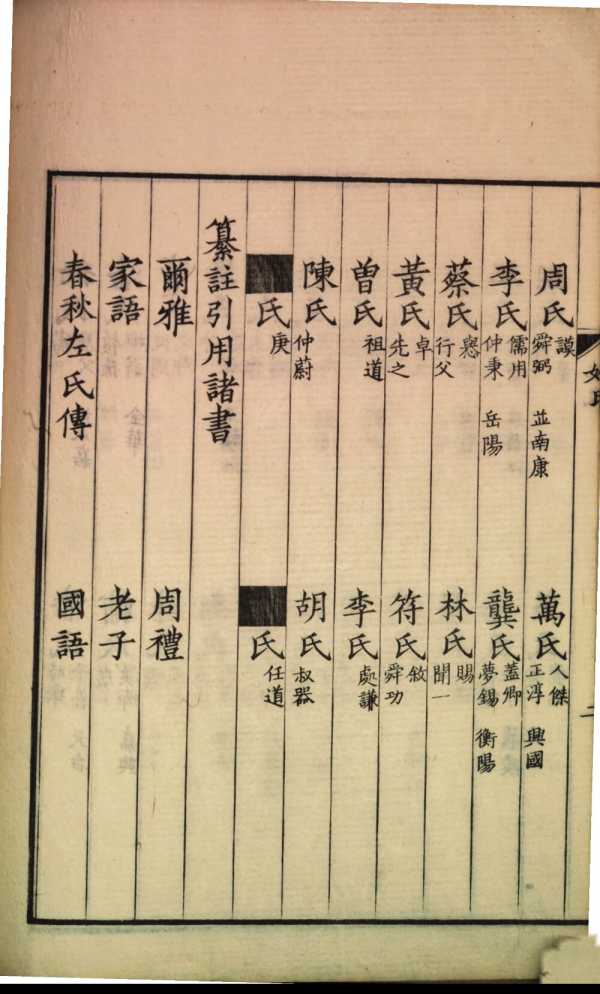 周氏 謨 舜弼 並南康 萬氏 人傑 正淳 興國
李氏 儒用 仲秉 岳陽 龔氏 蓋卿 夢錫 衡陽
蔡氏 行父 林氏 賜 聞一
黃氏 卓 先之 符氏 敘 舜功
曾氏 祖道 李氏 處謙
陳氏 仲蔚 胡氏 叔器
■氏 庚 ■氏 任道
纂註引用諸書
爾雅 周禮
家語 老子
春秋左氏傳 國語